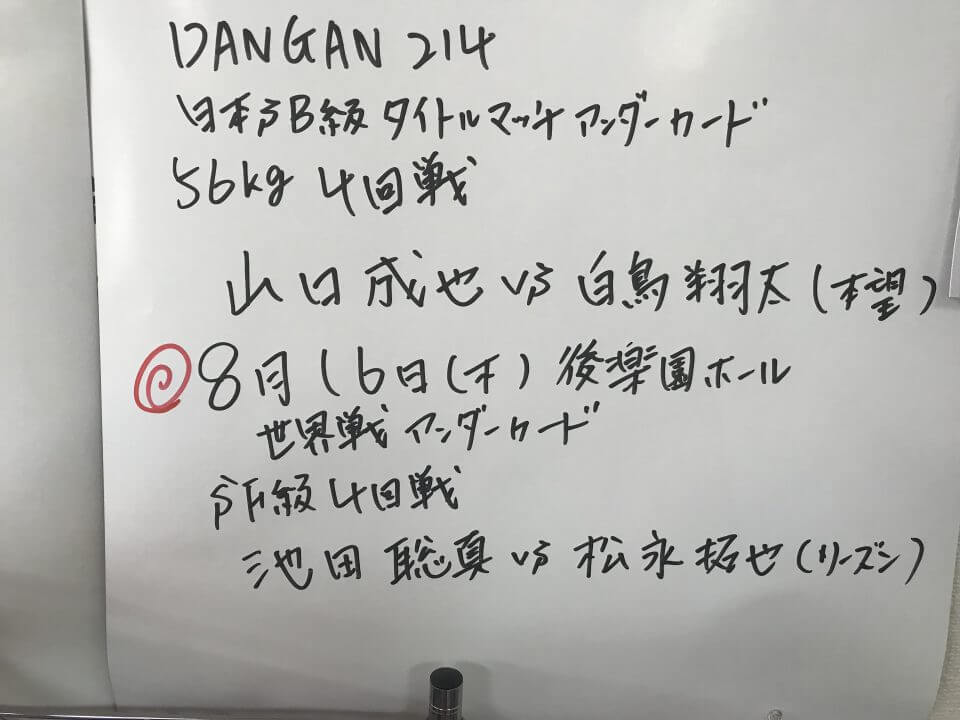 DANGAN 214
日本SB級タイトルマッチアンダーカード
56kg 4回戦
山口成也 VS 白鳥翔太(本望)
8月16日(木)後楽園ホール
世界戦アンダーカード
SF級4回戦
池田聡真 VS 松永拓也(リーズン)